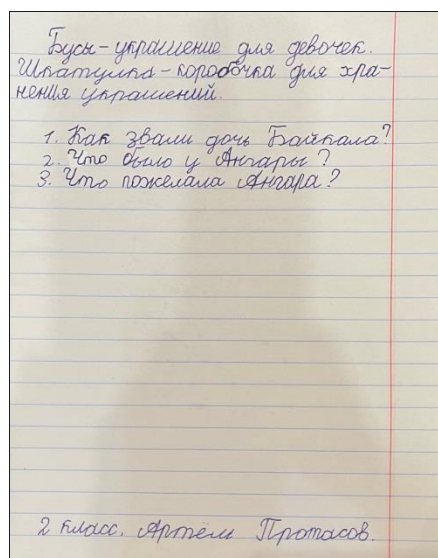 Бусы - украшение для девочек.
Шкатулка - коробочка для хра-
нения украшений.
1. Как звали дочь Байкала?
2. Что было у Ангары?
3. Что пожелала Ангара?
2 класс. Артём Протасов.